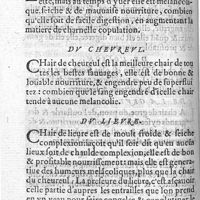 ette, mais au temps d'yuer elle est melancho-
que, seiche & de mauuaise nourriture, combien
qu'elle soit de facile digestion, en augmentant la
matiere de charnelle copulation.
DV CHEVREVL.
CHair de cheureul est la meilleure chair de tou-
tes les bestes sauuages, elle est de bonne &
louable nourriture, & engendre peu de superflui-
tez: combien que le sang engendré d'icelle chair
tende à aucune melancolie.
DV LIEVRE.
CHair de lieure est de moult froide & seiche
complexion: iaçoit qu'il soit dit qu'en aucūs
lieux soit de chaulde complexion, elle est de bonne
& profitable nourrissement: mais elle est genera-
tiue des humeurs melēcoliques, plus que la chair
du cheureul: La paellure du lieure, c'est à sçauoir
la petite peau appert és entrailles, que lon prend
en vn veau pour faire congeler & coaguler le